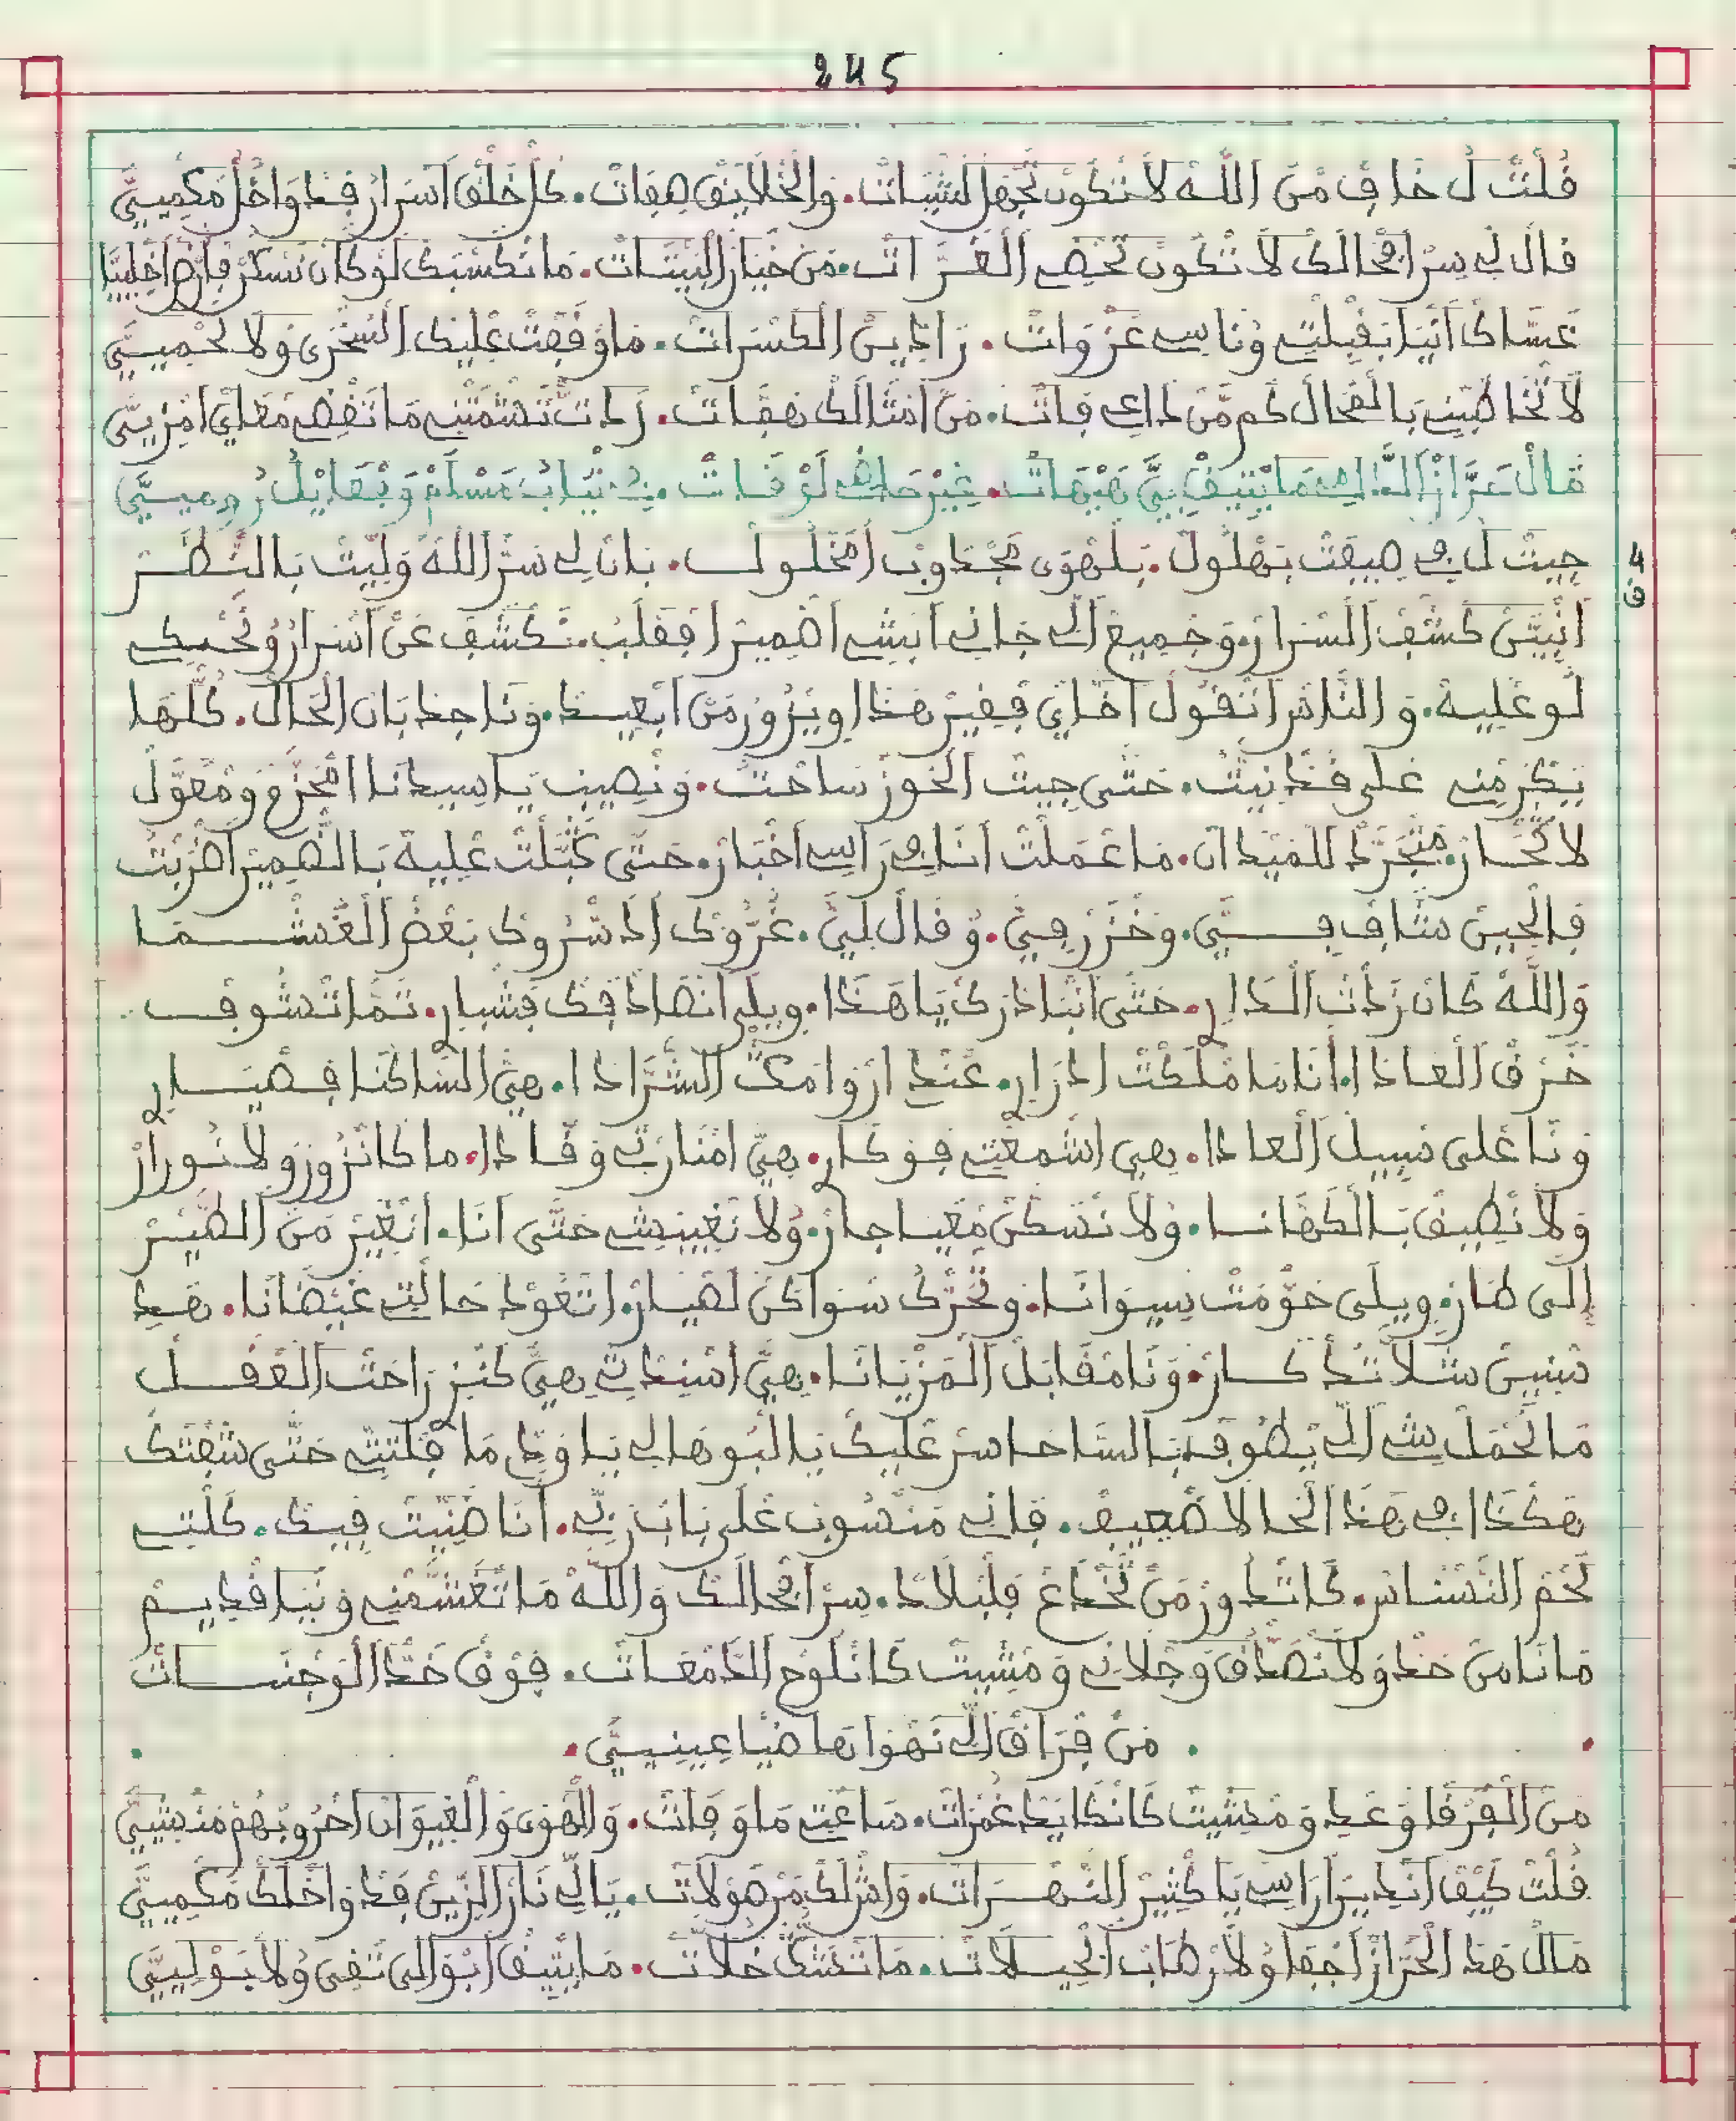 245
قُلْتْ لُ خَافْ مْنَ اللَّهْ لاَ تْكُونْ تْجْهَلْ لَشْيَاتْ. وَالْخْلاَيَقْ صِفَاتْ. كُلْ خَلْقْ اَسْرَارْ فْدْوَاخْلْ مَكْمِيَّ
قَالْ لِي سِرْ افْحَالَكْ لاَ تْكُونْ تْحْضِي الْغَرَّاتْ. مَنْ خْيَارْ الْبْيَّاتْ. مَا نْكَسْبَكْ لَوْ كَانْ نَسْكَنْ فَارْضْ اخْلِيَّا
عَسَّاكْ اَنْيَا بَقْبِلْتِي وْنَاسِي عَزْوَاتْ. زَادِينْ الْكَسْرَاتْ. مَا وْقَفْتْ عْلِيكْ السُّخْرَى وَلاَ تْحْمِيَّ
لاَ تْخَاطَبْنِي بَالْمْحَالْ كَمْ مَّنْ دَاعِي فَاتْ. مَنْ امْثَالَكْ هَيْهَاتْ. رَدْتْ تْهَشْمَتْنِي مَا تَقْضِي مْعَايْ امْزِيَّ
مَالْ حَرَّازْ اللَّا لِي مَا يْتِيقْ بِيَّ هَيْهَاتْ. غِيرْ حَاضِي لَوْقَاتْ. فْثْيَابْ مَسْلَمْ وَفْعَايْلُ رُومِيَّ
4
ق
جِيتْ لُ فِي صِيفَتْ بَهْلُولْ. بَلْهْوَى مَجْدُوبْ امْخَلُولْ. بَانْ لِي سَرْ اللَّهْ وَلِّيتْ بَالنّْظَرْ
انْبَيَّنْ كَشْفْ السْرَارْ. وَجْمِيعْ الِّي جَانِي ابْشِي اضْمِيرْ افْقَلْبُ. نَكْشَفْ عَنْ اَسْرَارُ وُنْحْكِي
لُو عْلِيهْ. وَالنَّاسْ اتْقُولْ اخَايْ فْقِيرْ هَذَا اوِيزُورْ مَنْ ابْعِيدْ. وْنَا جِدْبَانْ الْحَالْ. كُلّْهَا
يَكْرَمْنِي عْلَى قَدْ نِيتُ. حَتَّى جِيتْ الْحُوزْ سَاحْتُ. وَنْصِيبْ يَا سِيدْنَا امْحَزَّمْ وَمْعَوَّلْ
لاَ تْخْسَارْ. مْتْجَرَّدْ لَلْمَيْدَانْ. مَا عْمَلْتْ اَنَا فِي رَاسِي اخْبَارْ. حَتَّى كَبَّلْتْ عْلِيهْ بَالضْمِيرْ اضْرَبْتُ
فَالْحِينْ شَافْ فِيَّ. وَخْزَرْ فِيَّ. وْقَالْ لِيَّ. غَرُّوكْ اَلَا شَرُّوكْ بَعْضْ الْغَشْمَا
وَاللَّهْ كَانْ زَدْتْ الْدَارِي. حَتَّى انْبَادْرَكْ يَا هَذَا. وِيلَى انْصَادْفَكْ فَشْبَارِي. تَمَّا تْشُوفْ
خَرْقْ الْعَادَا. اَنَا مَا مْلَكْتْ ادْرَارِي. عَنْدِ ارْوَامَكْ الشْرَادَا. هِيَّ السَّاكْنَا فْضْيَارِي
وْنَا عْلَى سْبِيلْ الْعَادَا. هِيَ اشْمَعْتِي فَوْكَارِي. هِيَّ امْنَارْتِي وَقَّادَا. مَا كَاتْزُورْ وَلاَ تْوَرْرْ
وَلاَ تْطِيقْ بَالْكَهَّانَا. وُلاَ تَسْكَنْ مْعْيَا جَارْ. وُلاَ تْغِيبْشِي حَتَّى اَنَا. انْغِيرْ مَنْ الطَّيْرْ
إلَى طَارْ. وِيلَى حَوّْمَتْ بَسِيوَانَا. وَتْحَرّْكْ سْوَاكَنْ لَضْيَارْ. اتْعُودْ حَالْتِي غَيْضَانَا. هَدِ
سْنِينْ مْتْلاَ تْدْكَارْ. وْنَا مْقَابَلْ الْمَزْيَانَا. هِيَّ اسْنِيدْتِي هِيَّ كَنْزْ رَاحْتْ الْعْقَلْ
مَا تْحْمَلْ شِي الِّي يْطُوفْ بَالسَّاحَا سِرْ عْلِيكْ يَا لْبُوهَالِي يَا وَدِّي مَا قْلَتْنِي حَتَّى شَفْتَكْ
هَكْذَا فِي هَذَا الْحَالاَ ضْعِيفْ. فَانِي مَنْسُوبْ عْلَى بَابْ رَبِّي. اَنَا ضَنِّيتْ فِيكْ. كَلْتِي
لْحَمْ النَّسْنَاسْ. كَاتْدُورْ مَنْ تْخْدَعْ فَلْبْلاَدْ. سِرْ افْحَالَكْ وَاللَّهْ مَا تْغَشَّمْنِي وْنْيَا قْدِيمْ
مَانَا مَنْ حَدْ وَلاَ نْصَدَّقْ وَجْلاَنِي وَمْشِيتْ كَانْلُوحْ الدَّمْعَاتْ. فُوقْ خَدْ الْوَجْنَاتْ
مَنْ فْرَاقْ الِّي نَهْوَاهَا ضْيَا عِينِيَّ.
مَنْ الْفَرْقَا وْعَدِ وَمْشِيتْ كَانْكَايَدْ غَمْرَاتْ. سَاعْتِي مَا وَفَاتْ. وَالْهْوَى وَالْغِيوَانْ احْرُوبْهُمْ مَنْشِيَّ
قُلْتْ كَيْفْ انْدِيرْ ارَاسِي يَا كْثِيرْ التْهْرَاتْ. وَاشْ لَكْ مَنْ هَوْلاَتْ. يَا الِّي نَارْ الزِّينْ فْدْوَاخْلَكْ مَكْمِيَّ
مَالْ هَدْ الْحَرَّازْ اجْفَا وْلاَ رْطَابْ الْحِيلاَتْ. مَا تْشَكّْ خْلاَتْ. مَا يْتِيقْ ابْوَالِي تْقِي وُلاَ بَوْلِيَّ